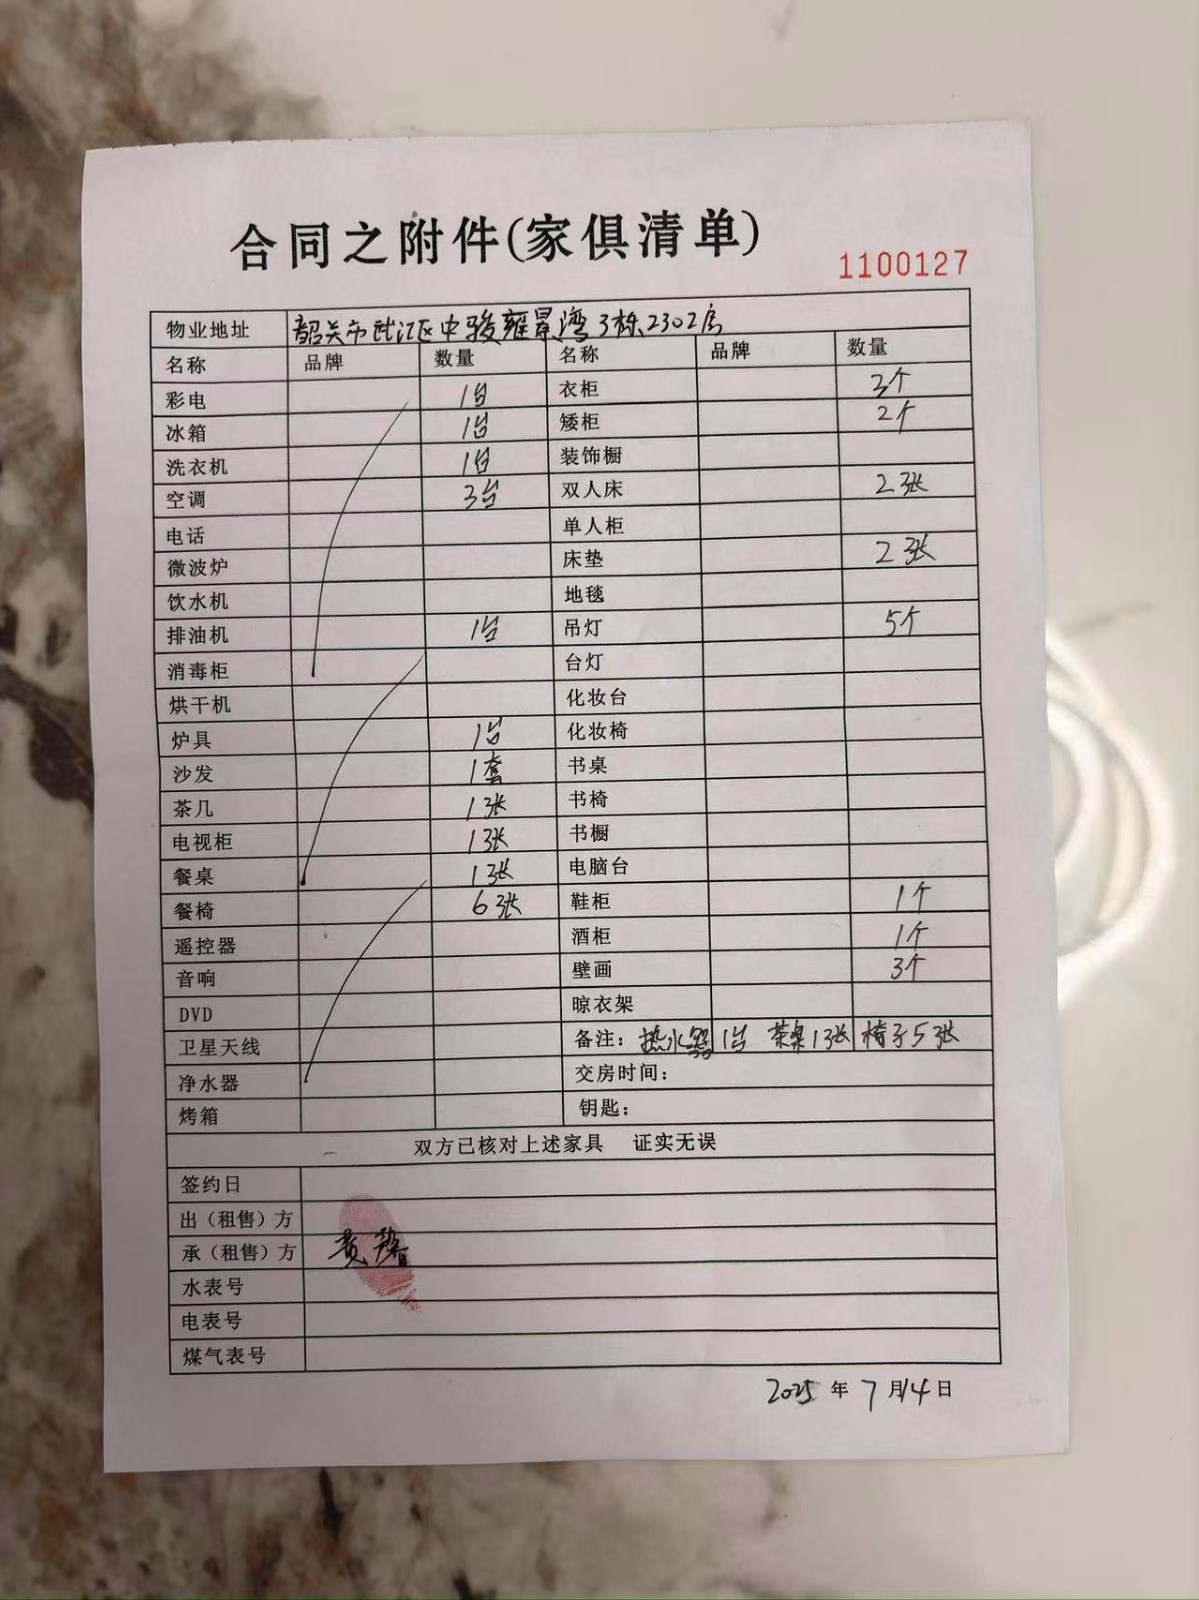 合同之附件(家俱清单)
1100127
物业地址 韶关市武江区中骏雍景湾3栋2302房
名称 品牌 数量 名称 品牌 数量
彩电 1台 衣柜 3个
冰箱 1台 矮柜 2个
洗衣机 1台 装饰橱
空调 3台 双人床 2张
电话 单人柜
微波炉 床垫 2张
饮水机 地毯
排油机 1台 吊灯 5个
消毒柜 台灯
烘干机 化妆台
炉具 1台 化妆椅
沙发 1套 书桌
茶几 1张 书椅
电视柜 1张 书橱
餐桌 1张 电脑台
餐椅 6张 鞋柜 1个
遥控器 酒柜 1个
音响 壁画 3个
DVD 晾衣架
卫星天线 备注：热水器1台 茶桌1张 椅子5张
净水器 交房时间：
烤箱 钥匙：
双方已核对上述家具 证实无误
签约日
出（租售）方
承（租售）方 黄
水表号
电表号
煤气表号
2025年7月14日